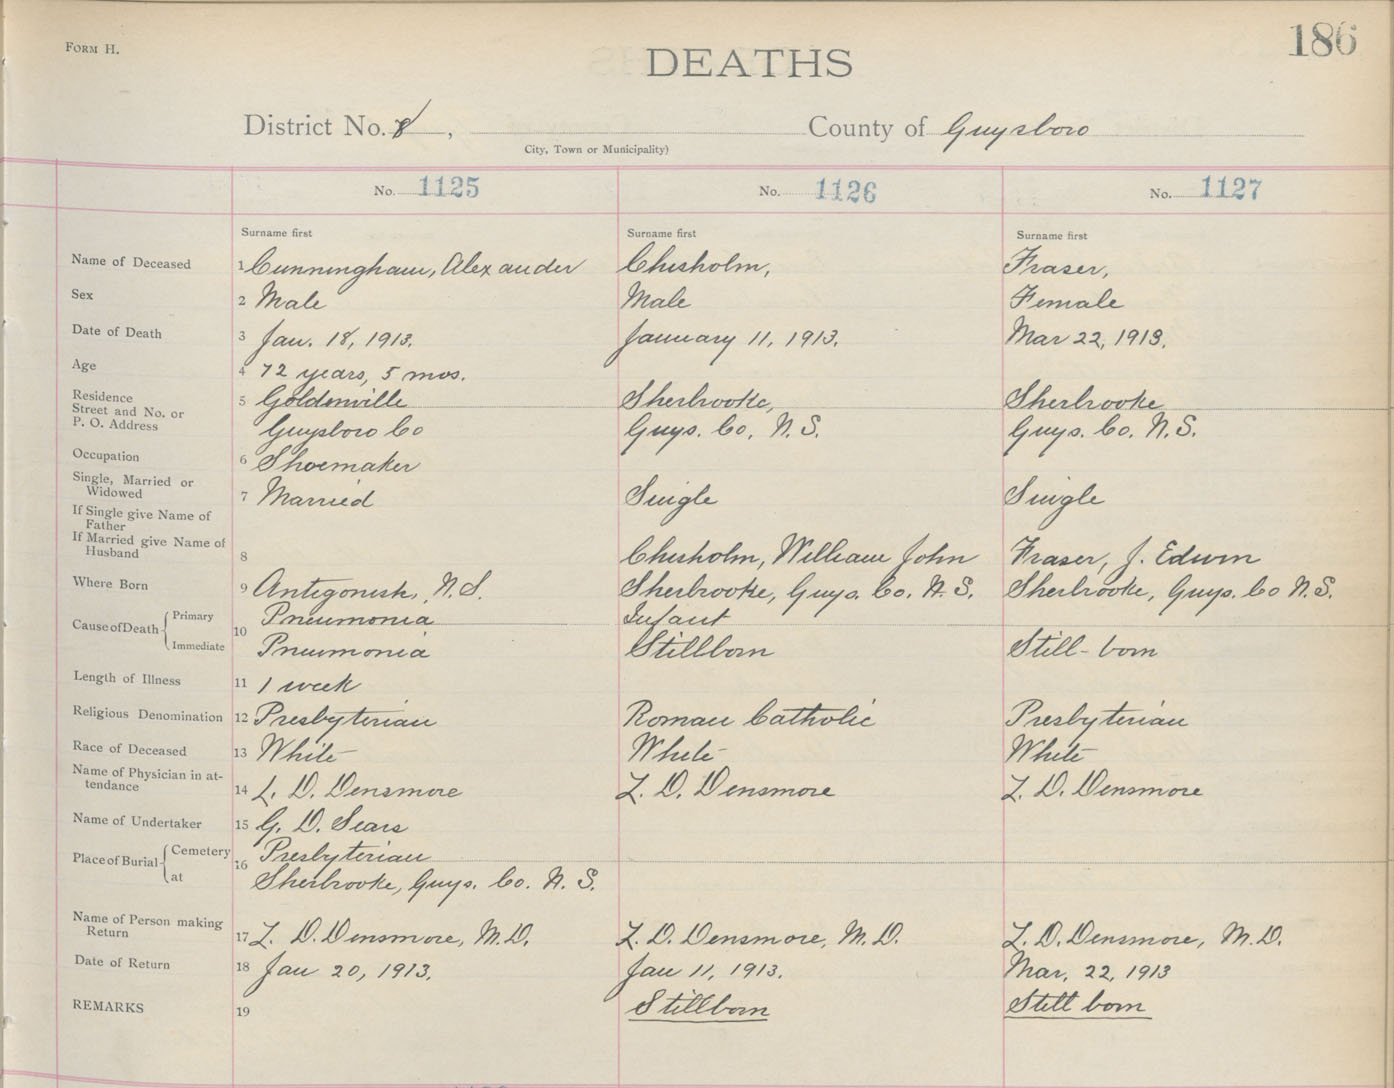 FORM H.
186
DEATHS
District No. 8, County of Guysboro
City, Town or Municipality)
No. 1125 No. 1126 No. 1127
Surname first Surname first Surname first
Name of Deceased 1 Cunningham, Alexander Chisholm, Fraser,
Sex 2 Male Male Female
Date of Death 3 Jan. 18, 1913. January 11, 1913. Mar 22, 1913.
Age 4 72 years, 5 mos.
Residence 5 Goldenville Sherbrooke, Sherbrooke
Street and No. or
P. O. Address Guysboro Co Guys. Co, N.S. Guys. Co. N.S.
Occupation 6 Shoemaker
Single, Married or
Widowed 7 Married Single Single
If Single give Name of
Father
If Married give Name of
Husband 8 Chisholm, William John Fraser, J. Edwin
Where Born 9 Antigonish, N.S. Sherbrooke, Guys. Co. N.S. Sherbrooke, Guys. Co N.S.
Cause of Death Primary 10 Pneumonia Infant
Immediate Pneumonia Stillborn Still-born
Length of Illness 11 1 week
Religious Denomination 12 Presbyterian Roman Catholic Presbyterian
Race of Deceased 13 White White White
Name of Physician in at-
tendance 14 L. D. Densmore L. D. Densmore L. D. Densmore
Name of Undertaker 15 G. D. Sears
Place of Burial Cemetery 16 Presbyterian
at Sherbrooke, Guys. Co. N.S.
Name of Person making
Return 17 L. D. Densmore, M.D. L. D. Densmore, M.D. L. D. Densmore, M.D.
Date of Return 18 Jan 20, 1913. Jan 11, 1913. Mar. 22, 1913
REMARKS 19 Stillborn Still born